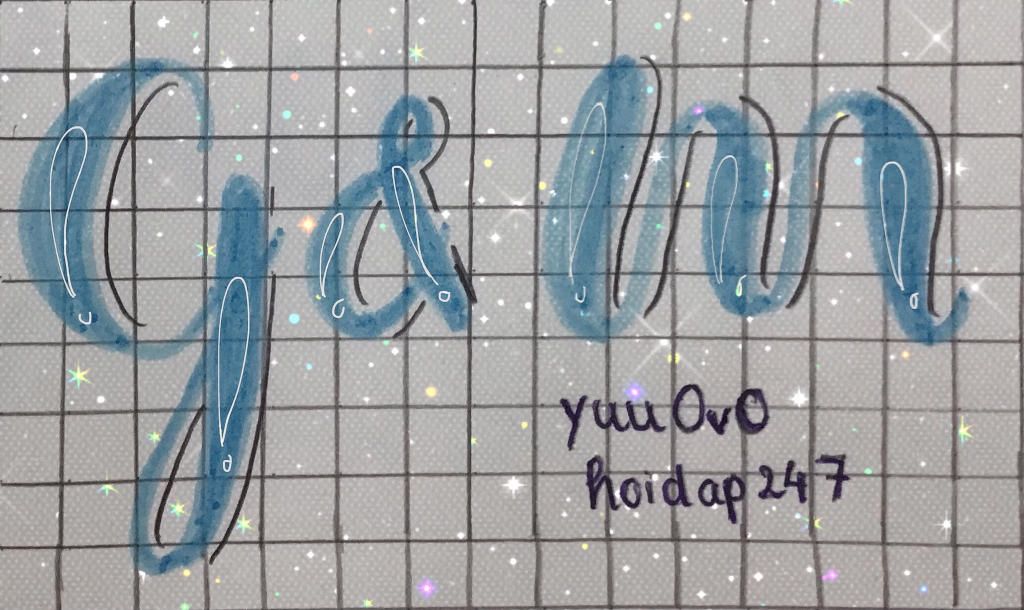 Gam
yuu0v0
hoidap247